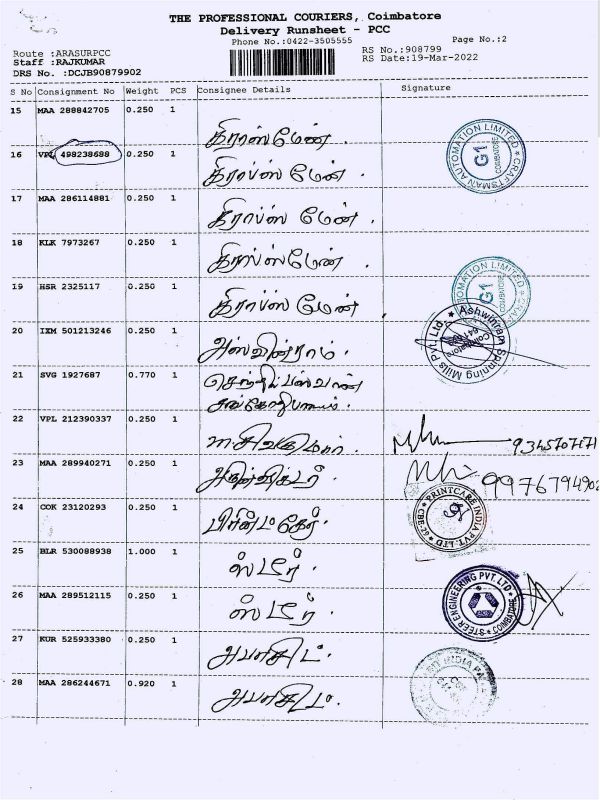 THE PROFESSIONAL COURIERS, Coimbatore
Delivery Runsheet - PCC
Phone No.:0422-3505555
Page No.:2
Route :ARASURPCC
RS No.:908799
Staff :RAJKUMAR
RS Date:19-Mar-2022
DRS No. :DCJB90879902
S No Consignment No Weight PCS Consignee Details Signature
15 MAA 288842705 0.250 1
கிராஸ்மேன்.
16 VPL 498238688 0.250 1
கிராப்ஸ் மேன்.
CRAFTSMAN AUTOMATION LIMITED
G1
COIMBATORE
17 MAA 286114881 0.250 1
கிராப்ஸ் மேன்.
18 KLK 7973267 0.250 1
கிராப்ஸ் மேன்.
19 HSR 2325117 0.250 1
கிராப்ஸ் மேன்.
AUTOMATION LIMITED
G1
COIMBATORE
20 IXM 501213246 0.250 1
அஸ்வின்ராம்.
Ashwinram Spinning Mills Pvt Ltd.
Coimbatore
21 SVG 1927687 0.770 1
22 VPL 212390337 0.250 1
சிவகுமார்.
23 MAA 289940271 0.250 1
9976794902
24 COK 23120293 0.250 1
பிரின்ட் கேர்.
PRINTCARE INDIA PVT. LTD
25 BLR 530088938 1.000 1
ஸ்டீர்.
26 MAA 289512115 0.250 1
ஸ்டீர்.
STEER ENGINEERING PVT. LTD
COIMBATORE
27 KUR 525933380 0.250 1
28 MAA 286244671 0.920 1
INDIA